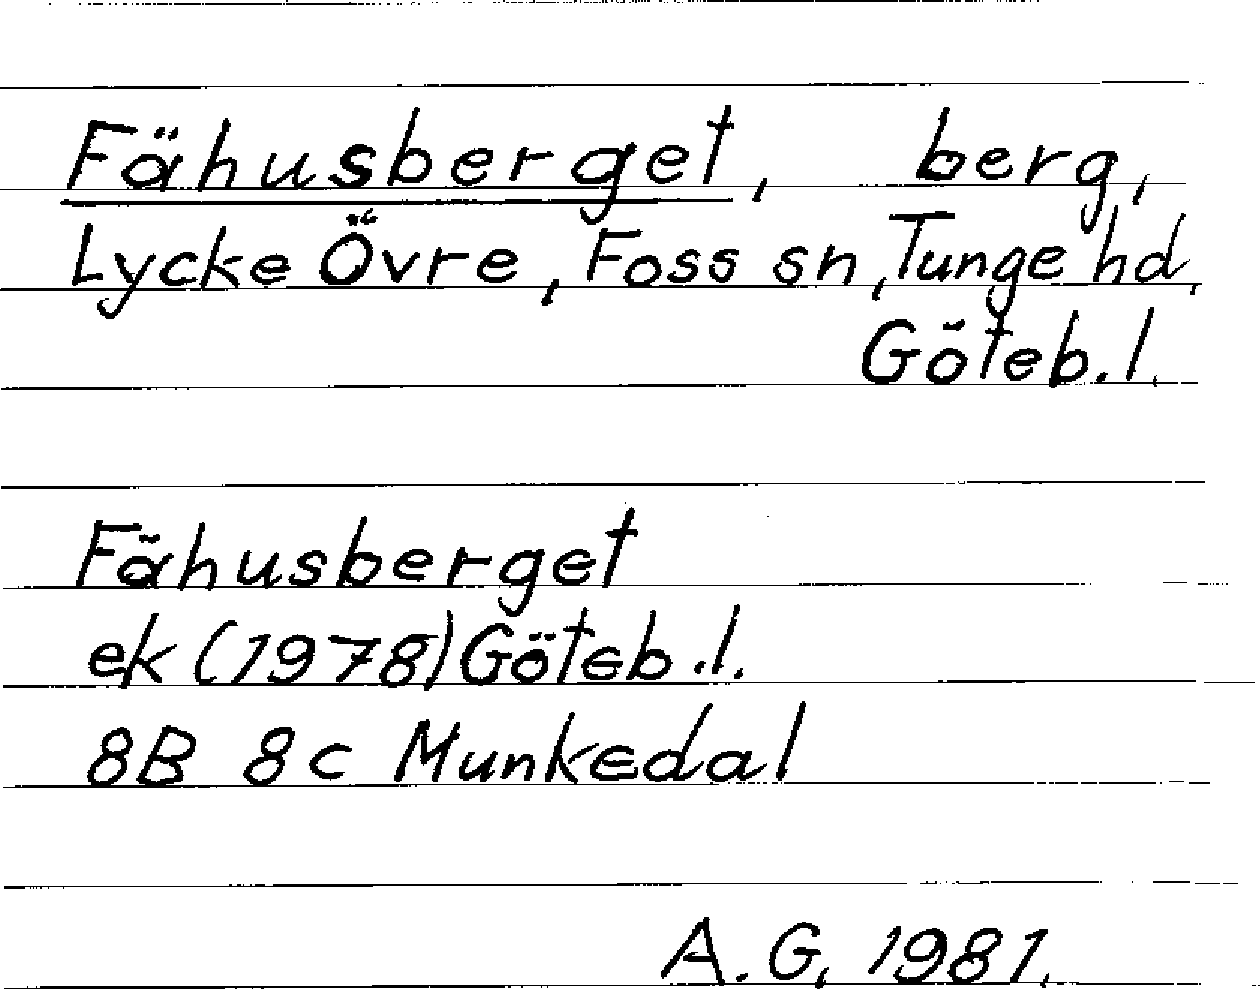 Fähusberget, berg,
Lycke Övre, Foss sn, Tunge hd.
Göteb. l.
Fähusberget
ek (1978) Göteb. l.
8B 8c Munkedal
A. G, 1981.